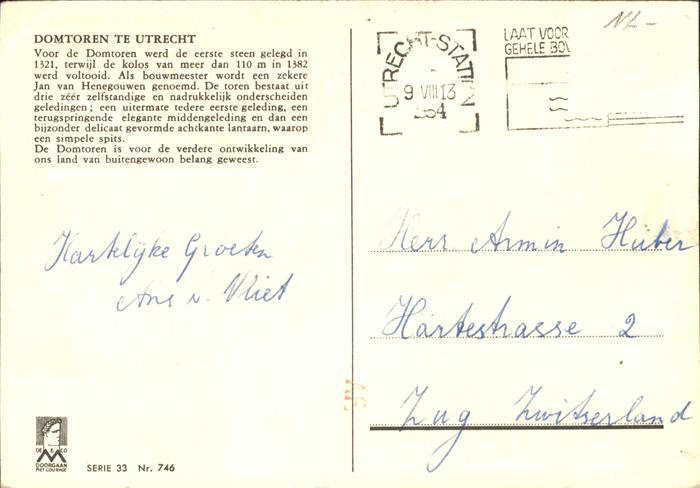 DOMTOREN TE UTRECHT
Voor de Domtoren werd de eerste steen gelegd in
1321, terwijl de kolos van meer dan 110 m in 1382
werd voltooid. Als bouwmeester wordt een zekere
Jan van Henegouwen genoemd. De toren bestaat uit
drie zéér zelfstandige en nadrukkelijk onderscheiden
geledingen; een uitermate tedere eerste geleding, een
terugspringende elegante middengeleding en dan een
bijzonder delicaat gevormde achtkante lantaarn, waarop
een simpele spits.
De Domtoren is voor de verdere ontwikkeling van
ons land van buitengewoon belang geweest.
Hartelijke Groeten
Ans v. Vliet
DE & CO
M
DOORGAAN
MET COURAGE
SERIE 33 Nr. 746
NL-
UTRECHT-STATION
9 VIII 13
LAAT VOOR
GEHELE
Herr Armin Huber
Hartestrasse 2
Zug Zwitserland